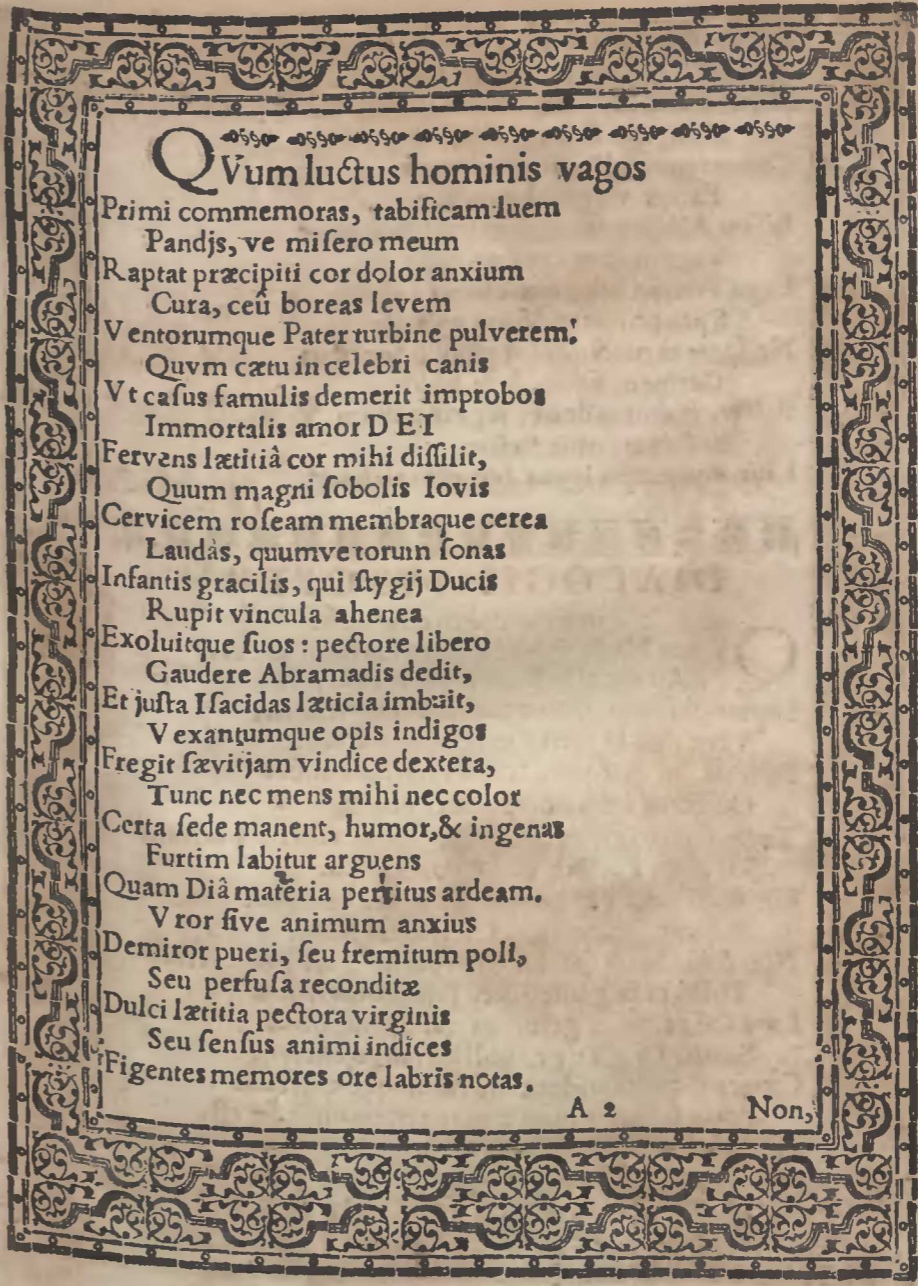 QVum luctus hominis vagos
Primi commemoras, tabificam luem
Pandjs, ve misero meum
Raptat præcipiti cor dolor anxium
Cura, ceû boreas levem
Ventorumque Pater turbine pulverem:
Quvm cætu in celebri canis
Vt casus famulis demerit improbos
Immortalis amor DEI
Fervens lætitiâ cor mihi dissilit,
Quum magni sobolis Iovis
Cervicem roseam membraque cerea
Laudàs, quumve torum sonas
Infantis gracilis, qui stygij Ducis
Rupit vincula ahenea
Exoluitque suos : pectore libero
Gaudere Abramadis dedit,
Et justa Isacidas læticia imbuit,
Vexantumque opis indigos
Fregit sævitjam vindice dextera,
Tunc nec mens mihi nec color
Certa sede manent, humor,& ingenas
Furtim labitur arguens
Quam Diâ materia penitus ardeam.
Vror sive animum anxius
Demiror pueri, seu fremitum poli,
Seu perfusa reconditæ
Dulci lætitia pectora virginis
Seu sensus animi indices
Figentes memores ore labris notas.
A 2 Non,